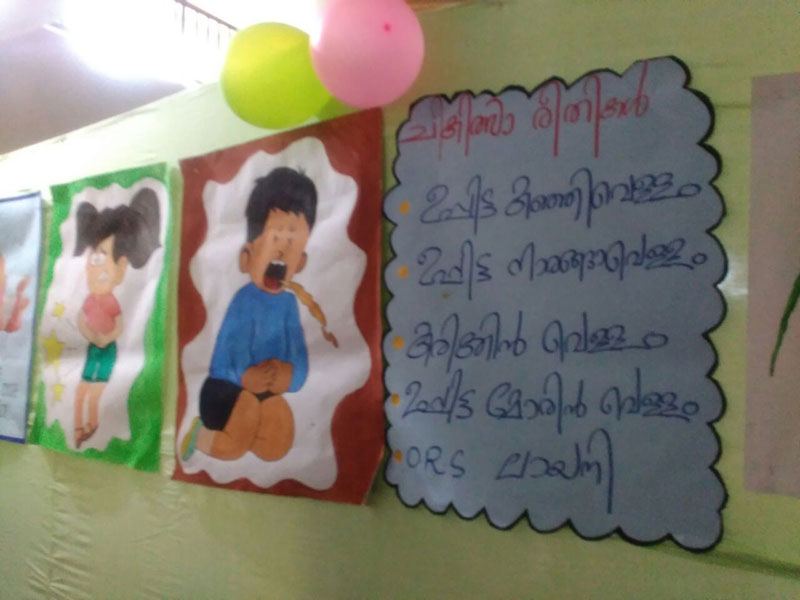 ചികിത്സാ രീതികൾ
ഉപ്പിട്ട കഞ്ഞിവെള്ളം
ഉപ്പിട്ട നാരങ്ങാവെള്ളം
കരിക്കിൻ വെള്ളം
ഉപ്പിട്ട മോരിൻ വെള്ളം
ORS ലായനി